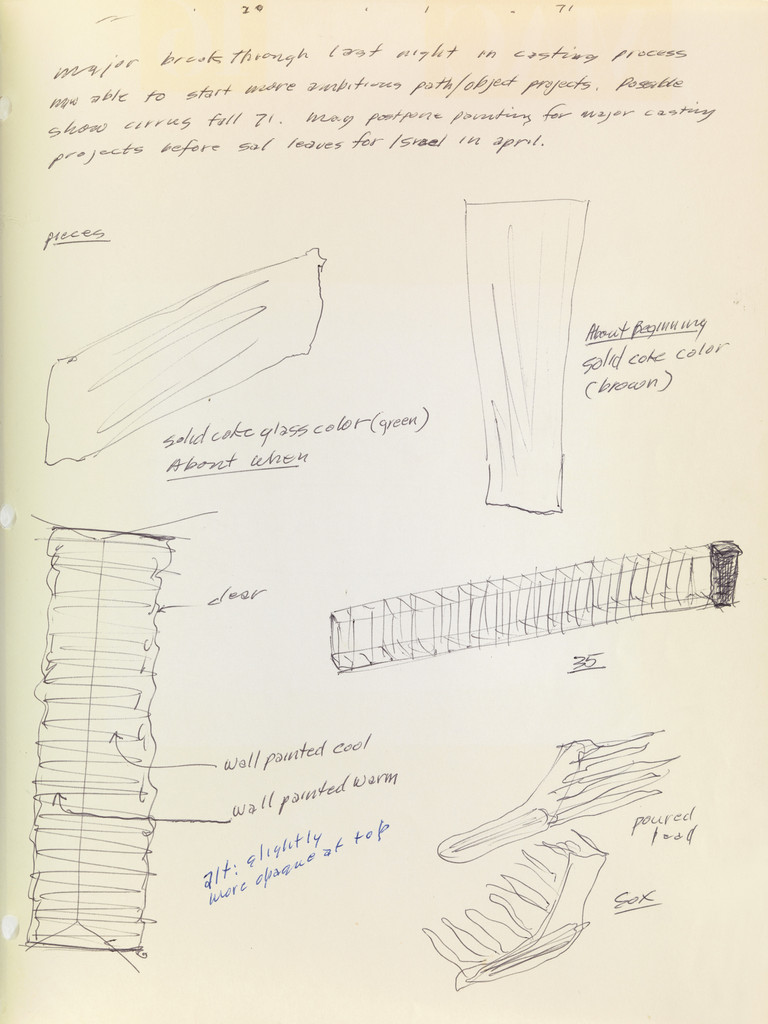 20 1 71
major breakthrough last night in casting process
now able to start more ambitious path/object projects. Possible
show cirrus fall 71. may postpone painting for major casting
projects before sal leaves for Israel in april.
pieces
About Beginning
solid coke color
(brown)
solid coke glass color (green)
About when
clear
35
wall painted cool
wall painted warm
alt: slightly
more opaque at top
poured
lead
Sox